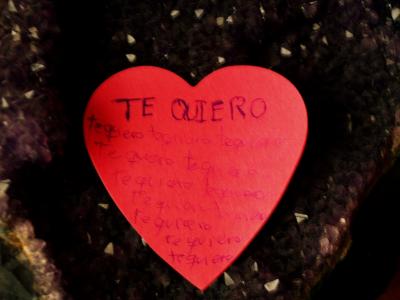 TE QUIERO
te quiero te quiero te quiero
te quiero te quiero
te quiero te quiero
te quiero
te quiero
te quiero
te quiero